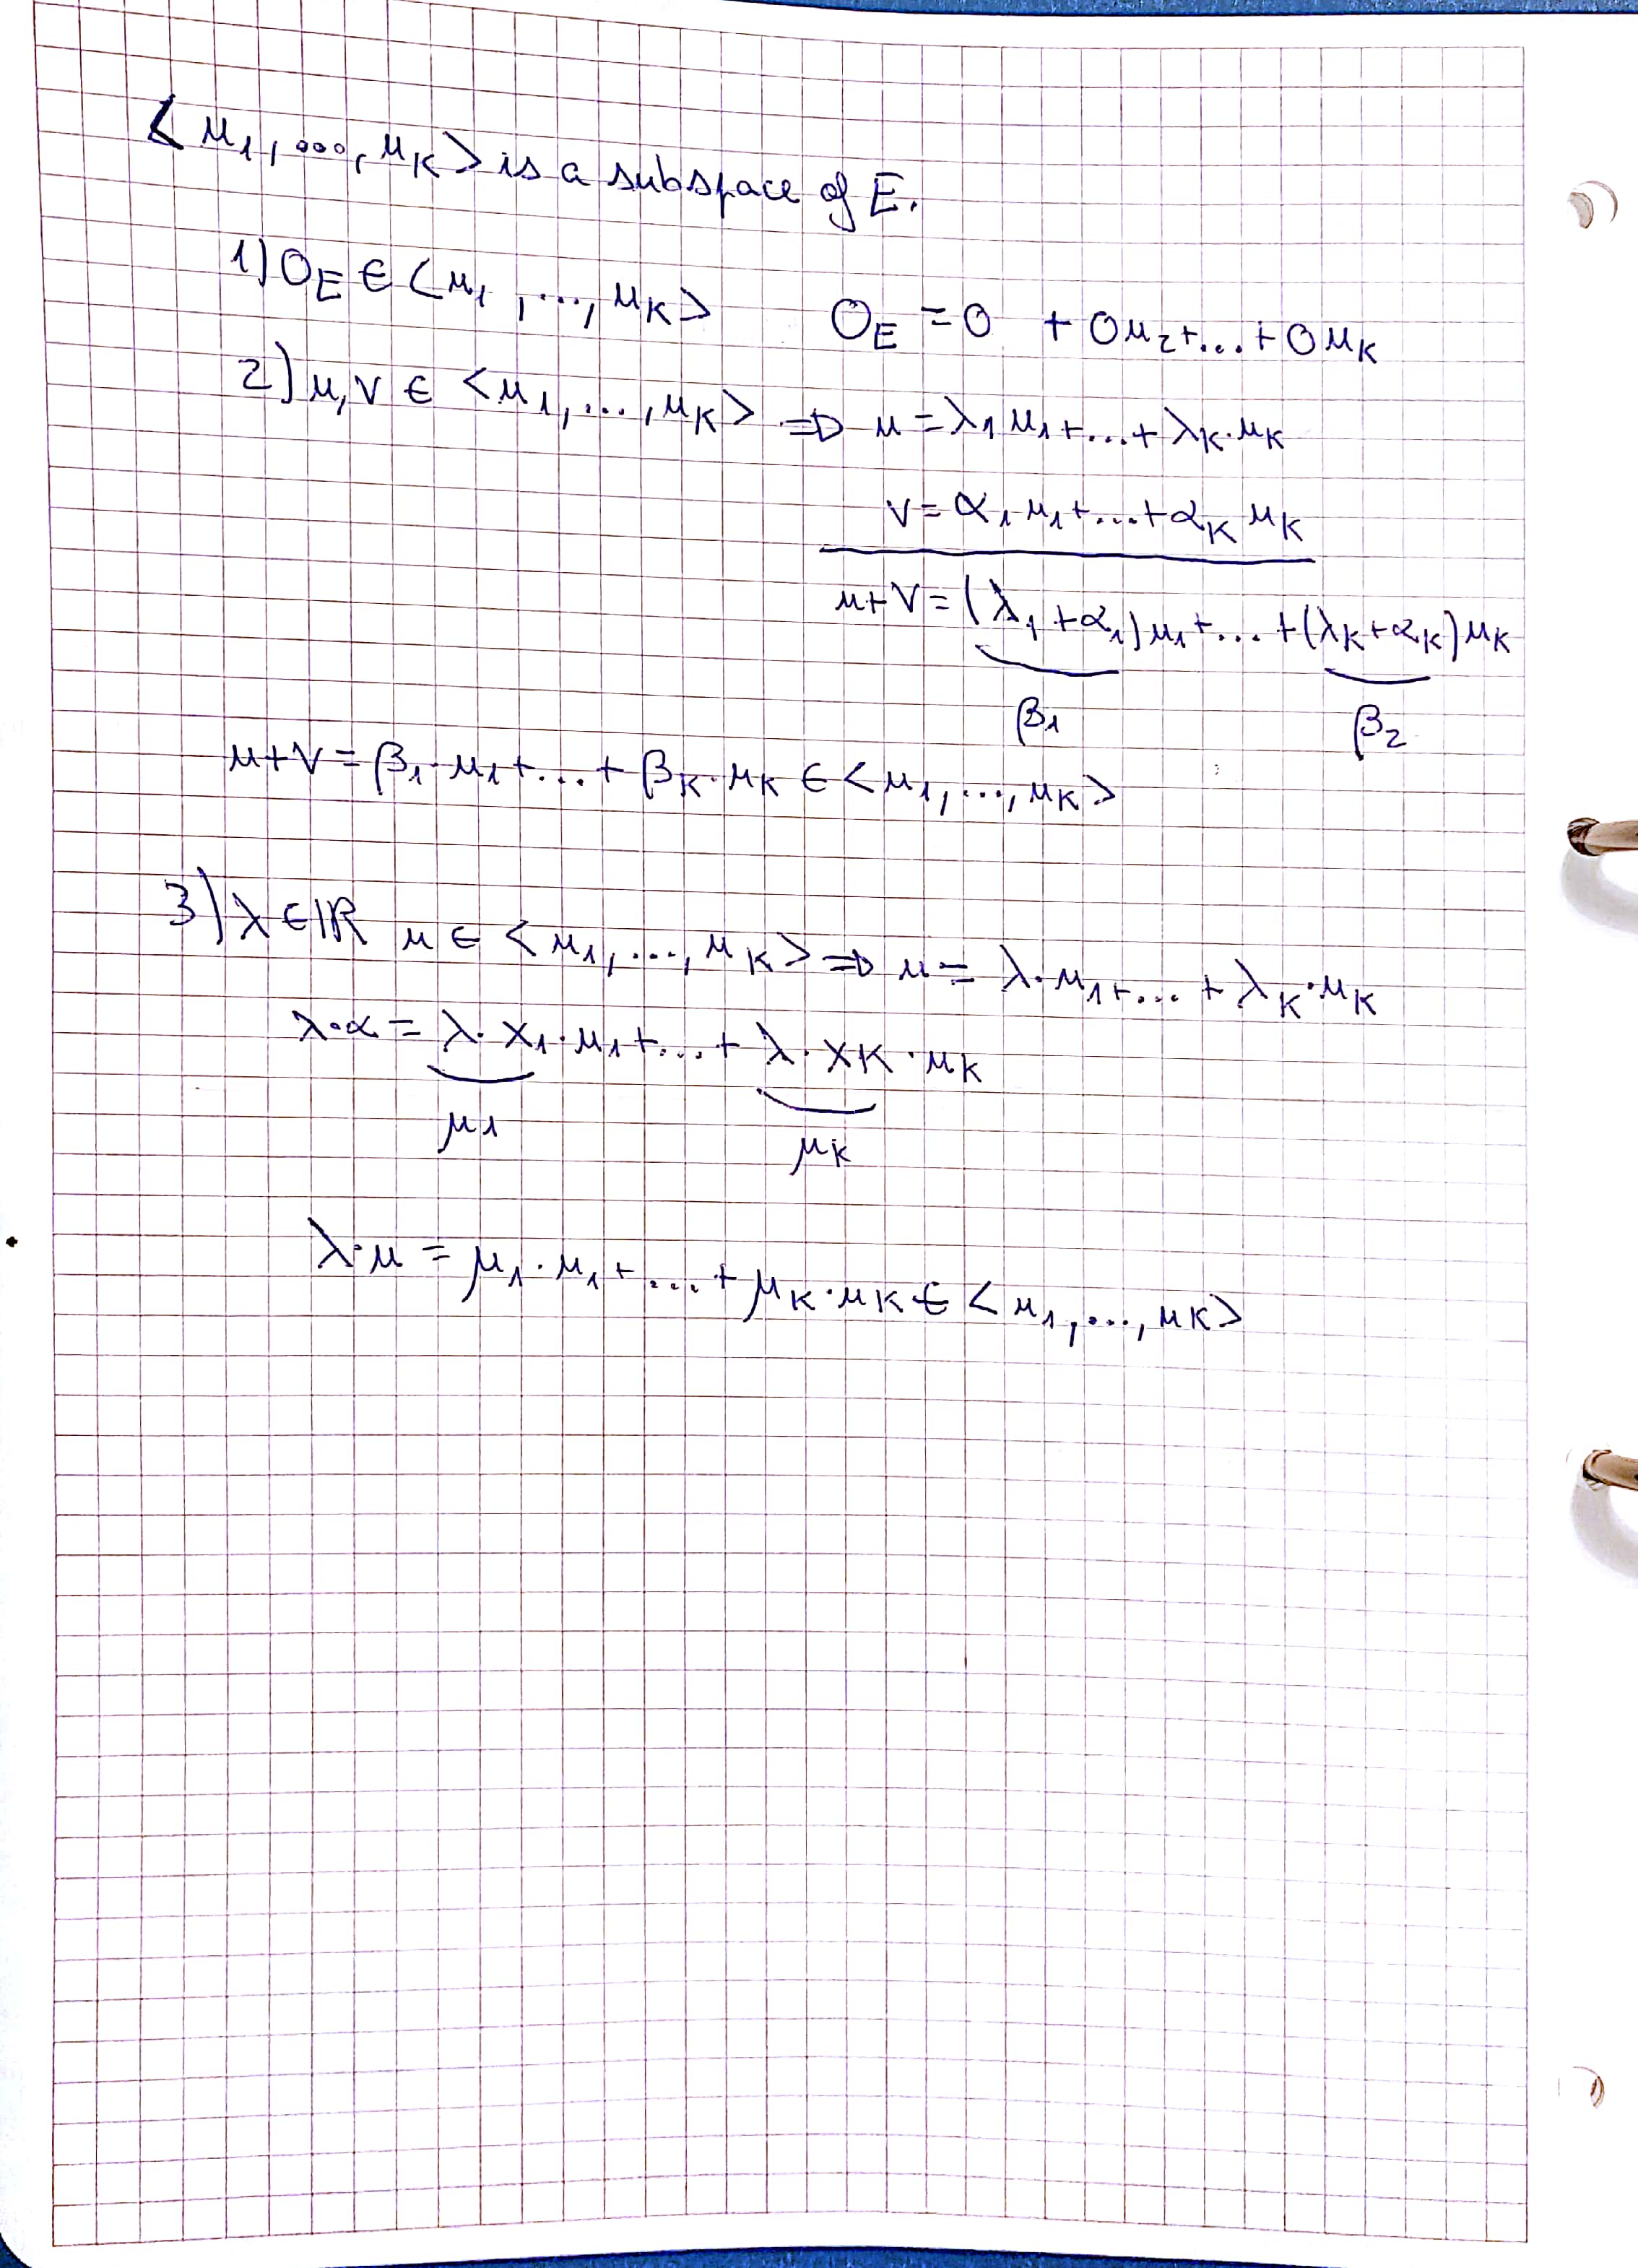 <u₁,...,u_K> is a subspace of E.
1) O_E ∈ <u₁,...,u_K> O_E = 0 + 0u₂+...+0u_K
2) u,v ∈ <u₁,...,u_K> ⇒ u = λ₁u₁+...+λ_K·u_K
v = α₁u₁+...+α_K u_K
u+v = (λ₁+α₁)u₁+...+(λ_K+α_K)u_K
β₁ β₂
u+v = β₁·u₁+...+β_K·u_K ∈ <u₁,...,u_K>
3) λ ∈ ℝ u ∈ <u₁,...,u_K> ⇒ u = λ·u₁+...+λ_K·u_K
λ·α = λ·x₁·u₁+...+λ·x_K·u_K
μ₁ μ_K
λ·u = μ₁·u₁+...+μ_K·u_K ∈ <u₁,...,u_K>